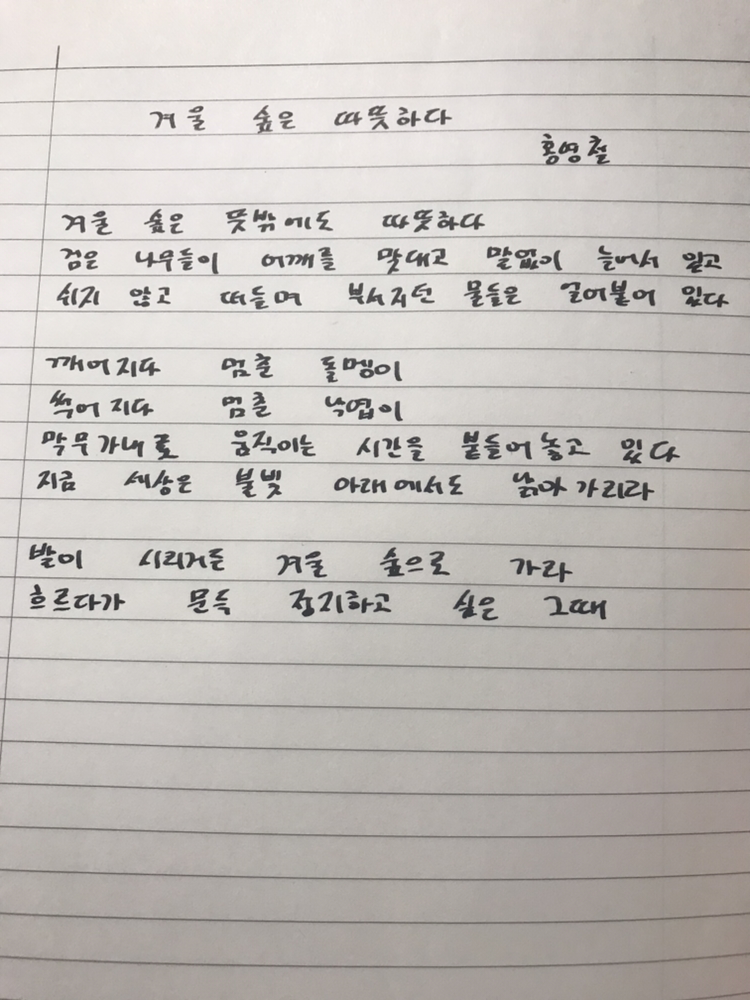 겨울 숲은 따뜻하다
홍영철
겨울 숲은 뜻밖에도 따뜻하다
검은 나무들이 어깨를 맞대고 말없이 늘어서 있고
쉬지 않고 떠들며 부서지던 물들은 얼어붙어 있다
깨어지다 멈춘 돌멩이
썩어지다 멈춘 낙엽이
막무가내로 움직이는 시간을 붙들어놓고 있다
지금 세상은 불빛 아래에서도 낡아가리라
발이 시리거든 겨울 숲으로 가라
흐르다가 문득 정지하고 싶은 그때